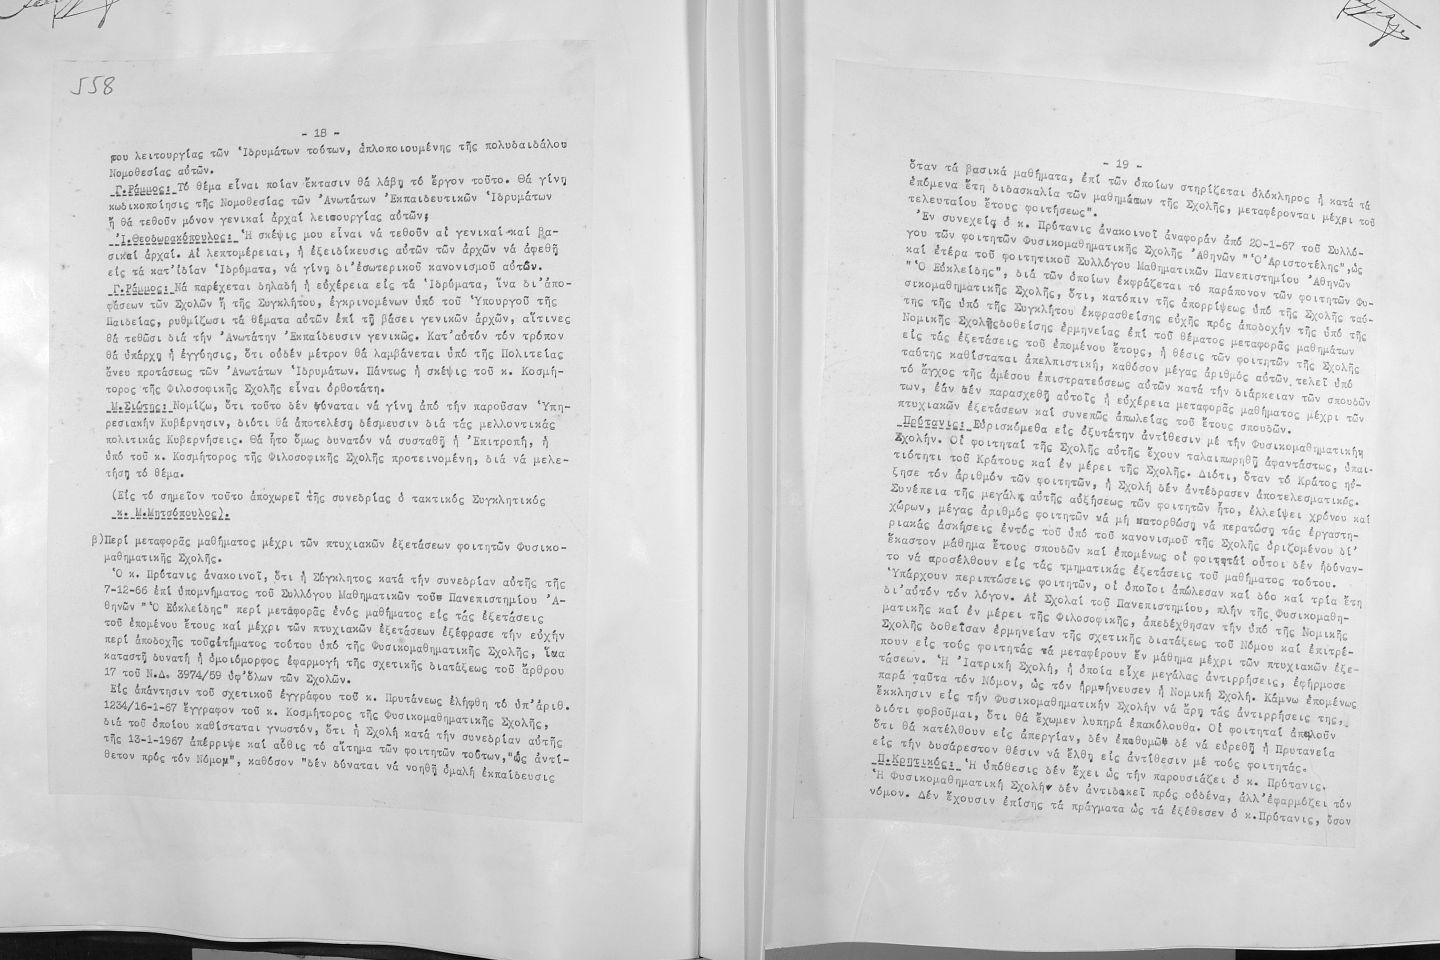 558
- 18 -
που λειτουργίας τῶν Ἱδρυμάτων τούτων, ἁπλοποιουμένης τῆς πολυδαιδάλου
Νομοθεσίας αὐτῶν.
Γ.Ράμμος: Τό θέμα εἶναι ποίαν ἔκτασιν θά λάβῃ τό ἔργον τοῦτο. Θά γίνῃ
κωδικοποίησις τῆς Νομοθεσίας τῶν Ἀνωτάτων Ἐκπαιδευτικῶν Ἱδρυμάτων
ἤ θά τεθοῦν μόνον γενικαί ἀρχαί λειτουργίας αὐτῶν;
Ἰ.Θεοδωρακόπουλος: Ἡ σκέψις μου εἶναι νά τεθοῦν αἱ γενικαί καί βα-
σικαί ἀρχαί. Αἱ λεπτομέρειαι, ἡ ἐξειδίκευσις αὐτῶν τῶν ἀρχῶν νά ἀφεθῇ
εἰς τά κατ'ἰδίαν Ἱδρύματα, νά γίνῃ δι'ἐσωτερικοῦ κανονισμοῦ αὐτῶν.
Γ.Ράμμος: Νά παρέχεται δηλαδή ἡ εὐχέρεια εἰς τά Ἱδρύματα, ἵνα δι'ἀπο-
φάσεων τῶν Σχολῶν ἤ τῆς Συγκλήτου, ἐγκρινομένων ὑπό τοῦ Ὑπουργοῦ τῆς
Παιδείας, ρυθμίζωσι τά θέματα αὐτῶν ἐπί τῇ βάσει γενικῶν ἀρχῶν, αἵτινες
θά τεθῶσι διά τήν Ἀνωτάτην Ἐκπαίδευσιν γενικῶς. Κατ'αὐτόν τόν τρόπον
θά ὑπάρχῃ ἡ ἐγγύησις, ὅτι οὐδέν μέτρον θά λαμβάνεται ὑπό τῆς Πολιτείας
ἄνευ προτάσεως τῶν Ἀνωτάτων Ἱδρυμάτων. Πάντως ἡ σκέψις τοῦ κ. Κοσμή-
τορος τῆς Φιλοσοφικῆς Σχολῆς εἶναι ὀρθοτάτη.
Μ.Σιώτης: Νομίζω, ὅτι τοῦτο δέν δύναται νά γίνῃ ἀπό τήν παροῦσαν Ὑπη-
ρεσιακήν Κυβέρνησιν, διότι θά ἀποτελέσῃ δέσμευσιν διά τάς μελλοντικάς
πολιτικάς Κυβερνήσεις. Θά ἦτο ὅμως δυνατόν νά συσταθῇ ἡ Ἐπιτροπή, ἡ
ὑπό τοῦ κ. Κοσμήτορος τῆς Φιλοσοφικῆς Σχολῆς προτεινομένη, διά νά μελε-
τήσῃ τό θέμα.
(Εἰς τό σημεῖον τοῦτο ἀποχωρεῖ τῆς συνεδρίας ὁ τακτικός Συγκλητικός
κ. Μ.Μητσόπουλος).
β)Περί μεταφορᾶς μαθήματος μέχρι τῶν πτυχιακῶν ἐξετάσεων φοιτητῶν Φυσικο-
μαθηματικῆς Σχολῆς.
Ὁ κ. Πρύτανις ἀνακοινοῖ, ὅτι ἡ Σύγκλητος κατά τήν συνεδρίαν αὐτῆς τῆς
7-12-66 ἐπί ὑπομνήματος τοῦ Συλλόγου Μαθηματικῶν τοῦ Πανεπιστημίου Ἀ-
θηνῶν "Ὁ Εὐκλείδης" περί μεταφορᾶς ἑνός μαθήματος εἰς τάς ἐξετάσεις
τοῦ ἑπομένου ἔτους καί μέχρι τῶν πτυχιακῶν ἐξετάσεων ἐξέφρασε τήν εὐχήν
περί ἀποδοχῆς τοῦ αἰτήματος τούτου ὑπό τῆς Φυσικομαθηματικῆς Σχολῆς, ἵνα
καταστῇ δυνατή ἡ ὁμοιόμορφος ἐφαρμογή τῆς σχετικῆς διατάξεως τοῦ ἄρθρου
17 τοῦ Ν.Δ. 3974/59 ὑφ'ὅλων τῶν Σχολῶν.
Εἰς ἀπάντησιν τοῦ σχετικοῦ ἐγγράφου τοῦ κ. Πρυτάνεως ἐλήφθη τό ὑπ'ἀριθ.
1234/16-1-67 ἔγγραφον τοῦ κ. Κοσμήτορος τῆς Φυσικομαθηματικῆς Σχολῆς,
διά τοῦ ὁποίου καθίσταται γνωστόν, ὅτι ἡ Σχολή κατά τήν συνεδρίαν αὐτῆς
τῆς 13-1-1967 ἀπέρριψε καί αὖθις τό αἴτημα τῶν φοιτητῶν τούτων,"ὡς ἀντί-
θετον πρός τόν Νόμον", καθόσον "δέν δύναται νά νοηθῇ ὁμαλή ἐκπαίδευσις
- 19 -
ὅταν τά βασικά μαθήματα, ἐπί τῶν ὁποίων στηρίζεται ὁλόκληρος ἡ κατά τά
ἑπόμενα ἔτη διδασκαλία τῶν μαθημάτων τῆς Σχολῆς, μεταφέρονται μέχρι τοῦ
τελευταίου ἔτους φοιτήσεως".
Ἐν συνεχείᾳ ὁ κ. Πρύτανις ἀνακοινοῖ ἀναφοράν ἀπό 20-1-67 τοῦ Συλλό-
γου τῶν φοιτητῶν Φυσικομαθηματικῆς Σχολῆς Ἀθηνῶν "Ὁ Ἀριστοτέλης",ὡς
καί ἑτέρα τοῦ φοιτητικοῦ Συλλόγου Μαθηματικῶν Πανεπιστημίου Ἀθηνῶν
"Ὁ Εὐκλείδης", διά τῶν ὁποίων ἐκφράζεται τό παράπονον τῶν φοιτητῶν Φυ-
σικομαθηματικῆς Σχολῆς, ὅτι, κατόπιν τῆς ἀπορρίψεως ὑπό τῆς Σχολῆς ταύ-
της τῆς ὑπό τῆς Συγκλήτου ἐκφρασθείσης εὐχῆς πρός ἀποδοχήν τῆς ὑπό τῆς
Νομικῆς Σχολῆς δοθείσης ἑρμηνείας ἐπί τοῦ θέματος μεταφορᾶς μαθημάτων
εἰς τάς ἐξετάσεις τοῦ ἑπομένου ἔτους, ἡ θέσις τῶν φοιτητῶν τῆς Σχολῆς
ταύτης καθίσταται ἀπελπιστική, καθόσον μέγας ἀριθμός αὐτῶν τελεῖ ὑπό
τό ἄγχος τῆς ἀμέσου ἐπιστρατεύσεως αὐτῶν κατά τήν διάρκειαν τῶν σπουδῶν
των, ἐάν δέν παρασχεθῇ αὐτοῖς ἡ εὐχέρεια μεταφορᾶς μαθήματος μέχρι τῶν
πτυχιακῶν ἐξετάσεων καί συνεπῶς ἀπωλείας τοῦ ἔτους σπουδῶν.
Πρύτανις: Εὑρισκόμεθα εἰς ὀξυτάτην ἀντίθεσιν μέ τήν Φυσικομαθηματικήν
Σχολήν. Οἱ φοιτηταί τῆς Σχολῆς αὐτῆς ἔχουν ταλαιπωρηθῆ ἀφαντάστως, ὑπαι-
τιότητι τοῦ Κράτους καί ἐν μέρει τῆς Σχολῆς. Διότι, ὅταν τό Κράτος ηὔ-
ξησε τόν ἀριθμόν τῶν φοιτητῶν, ἡ Σχολή δέν ἀντέδρασεν ἀποτελεσματικῶς.
Συνέπεια τῆς μεγάλης αὐτῆς αὐξήσεως τῶν φοιτητῶν ἦτο, ἐλλείψει χρόνου καί
χώρων, μέγας ἀριθμός φοιτητῶν νά μή κατορθώσῃ νά περατώσῃ τάς ἐργαστη-
ριακάς ἀσκήσεις ἐντός τοῦ ὑπό τοῦ κανονισμοῦ τῆς Σχολῆς ὁριζομένου δι'
ἕκαστον μάθημα ἔτους σπουδῶν καί ἑπομένως οἱ φοιτηταί οὗτοι δέν ἠδύναν-
το νά προσέλθουν εἰς τάς τμηματικάς ἐξετάσεις τοῦ μαθήματος τούτου.
Ὑπάρχουν περιπτώσεις φοιτητῶν, οἱ ὁποῖοι ἀπώλεσαν καί δύο καί τρία ἔτη
δι'αὐτόν τόν λόγον. Αἱ Σχολαί τοῦ Πανεπιστημίου, πλήν τῆς Φυσικομαθη-
ματικῆς καί ἐν μέρει τῆς Φιλοσοφικῆς, ἀπεδέχθησαν τήν ὑπό τῆς Νομικῆς
Σχολῆς δοθεῖσαν ἑρμηνείαν τῆς σχετικῆς διατάξεως τοῦ Νόμου καί ἐπιτρέ-
πουν εἰς τούς φοιτητάς νά μεταφέρουν ἕν μάθημα μέχρι τῶν πτυχιακῶν ἐξε-
τάσεων. Ἡ Ἰατρική Σχολή, ἡ ὁποία εἶχε μεγάλας ἀντιρρήσεις, ἐφήρμοσε
παρά ταῦτα τόν Νόμον, ὡς τόν ἡρμήνευσεν ἡ Νομική Σχολή. Κάμνω ἑπομένως
ἔκκλησιν εἰς τήν Φυσικομαθηματικήν Σχολήν νά ἄρῃ τάς ἀντιρρήσεις της,
διότι φοβοῦμαι, ὅτι θά ἔχωμεν λυπηρά ἐπακόλουθα. Οἱ φοιτηταί ἀπειλοῦν
ὅτι θά κατέλθουν εἰς ἀπεργίαν, δέν ἐπιθυμῶ δέ νά εὑρεθῇ ἡ Πρυτανεία
εἰς τήν δυσάρεστον θέσιν νά ἔλθῃ εἰς ἀντίθεσιν μέ τούς φοιτητάς.
Π.Κρητικός: Ἡ ὑπόθεσις δέν ἔχει ὡς τήν παρουσιάζει ὁ κ. Πρύτανις.
Ἡ Φυσικομαθηματική Σχολή δέν ἀντιδικεῖ πρός οὐδένα, ἀλλ'ἐφαρμόζει τόν
νόμον. Δέν ἔχουσιν ἐπίσης τά πράγματα ὡς τά ἐξέθεσεν ὁ κ.Πρύτανις, ὅσον